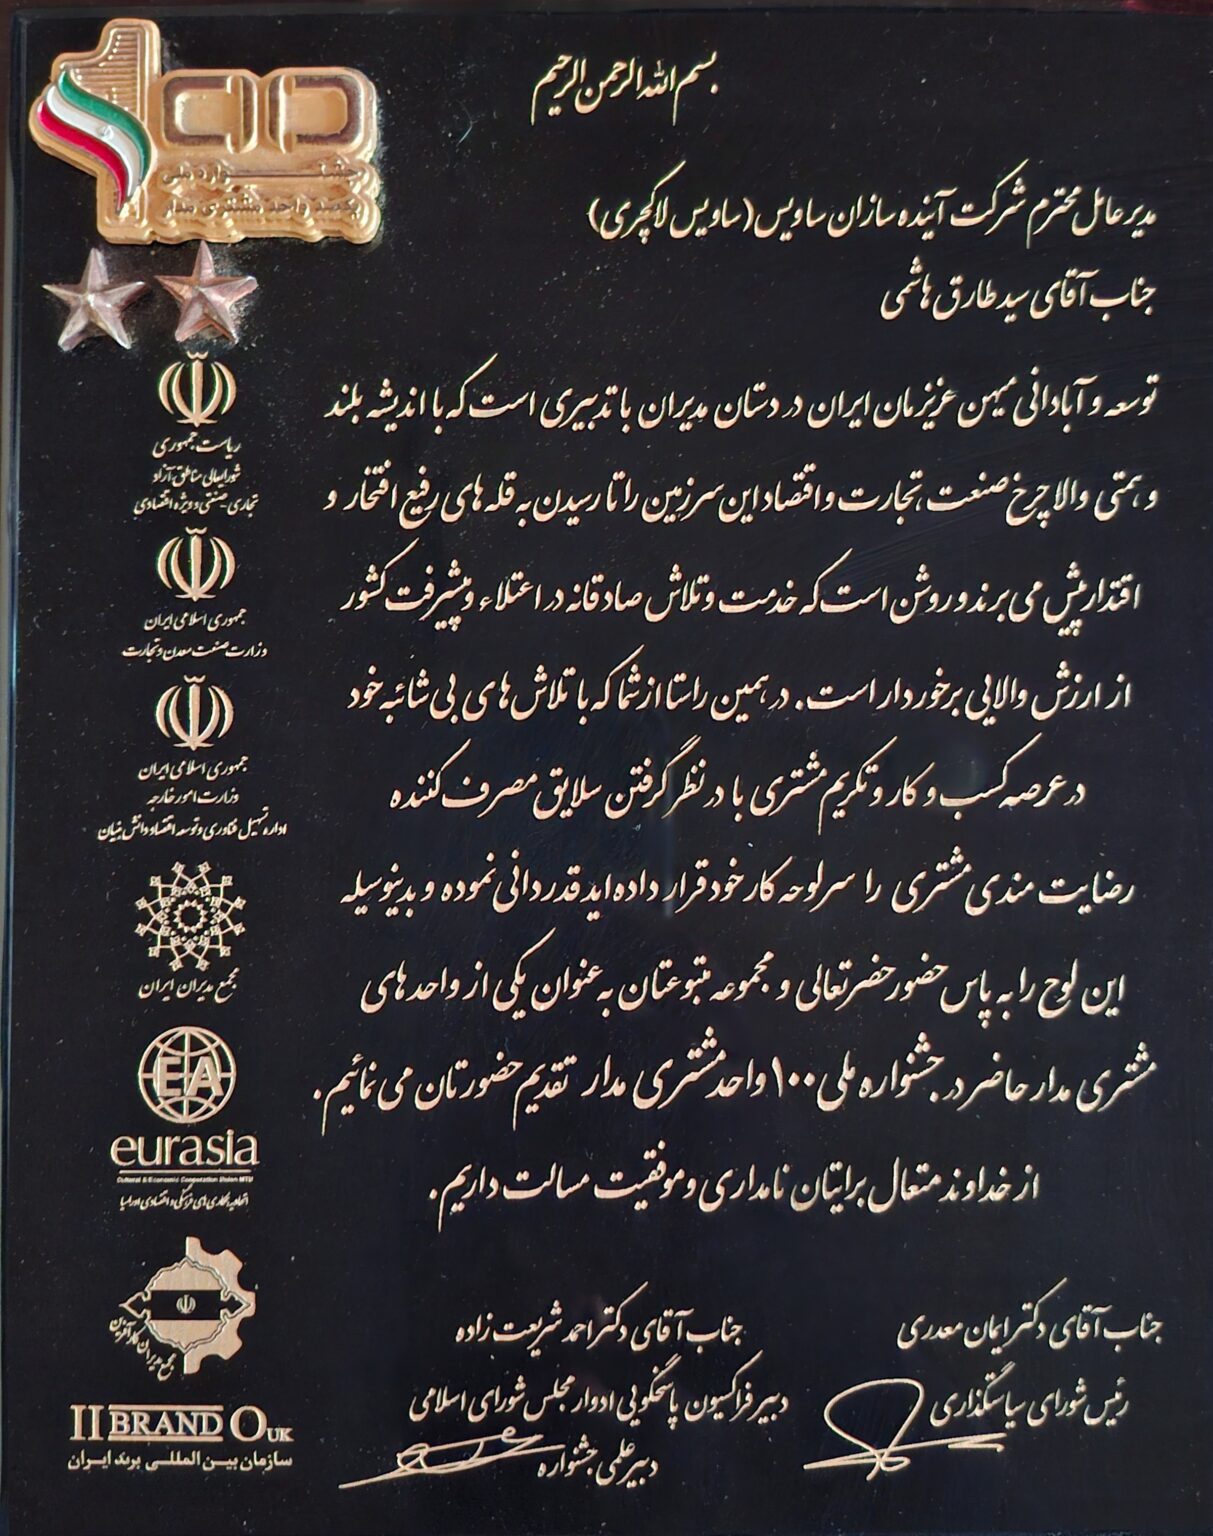 بسم الله الرحمن الرحیم
مدیر عامل محترم شرکت آینده سازان ساویس (ساویس لاکچری)
جناب آقای سید طارق هاشمی
توسعه و آبادانی میهن عزیزمان ایران در دستان مدیران با تدبیری است که با اندیشه بلند
و همتی والا چرخ صنعت، تجارت و اقتصاد این سرزمین را تا رسیدن به قله های رفیع افتخار و
اقتدار پیش می برند و روشن است که خدمت و تلاش صادقانه در اعتلاء و پیشرفت کشور
از ارزش والایی برخوردار است. در همین راستا از شما که با تلاش های بی شائبه خود
در عرصه کسب و کار و تکریم مشتری با در نظر گرفتن سلایق مصرف کننده
رضایت مندی مشتری را سرلوحه کار خود قرار داده اید قدردانی نموده و بدینوسیله
این لوح را به پاس حضور حضرتعالی و مجموعه متبوعتان به عنوان یکی از واحد های
مشتری مدار حاضر در جشنواره ملی ۱۰۰ واحد مشتری مدار تقدیم حضورتان می نمائیم.
از خداوند متعال برایتان نامداری و موفقیت مسالت داریم.
جناب آقای دکتر ایمان معدری
رئیس شورای سیاستگذاری
جناب آقای دکتر احمد شریعت زاده
دبیر فراکسیون پاسخگویی ادوار مجلس شورای اسلامی
دبیر علمی جشنواره
100
جشنواره ملی
یکصد واحد مشتری مدار
ریاست جمهوری
شورایعالی مناطق آزاد
تجاری-صنعتی و ویژه اقتصادی
جمهوری اسلامی ایران
وزارت صنعت معدن و تجارت
جمهوری اسلامی ایران
وزارت امور خارجه
اداره تسهیل فناوری و توسعه اقتصاد دانش بنیان
مجمع مدیران ایران
EA
eurasia
Cultural & Economic Cooperation Union MTU
اتحادیه همکاری های فرهنگی و اقتصادی اوراسیا
مجمع مدیران کارآفرین
II BRAND O UK
سازمان بین المللی برند ایران